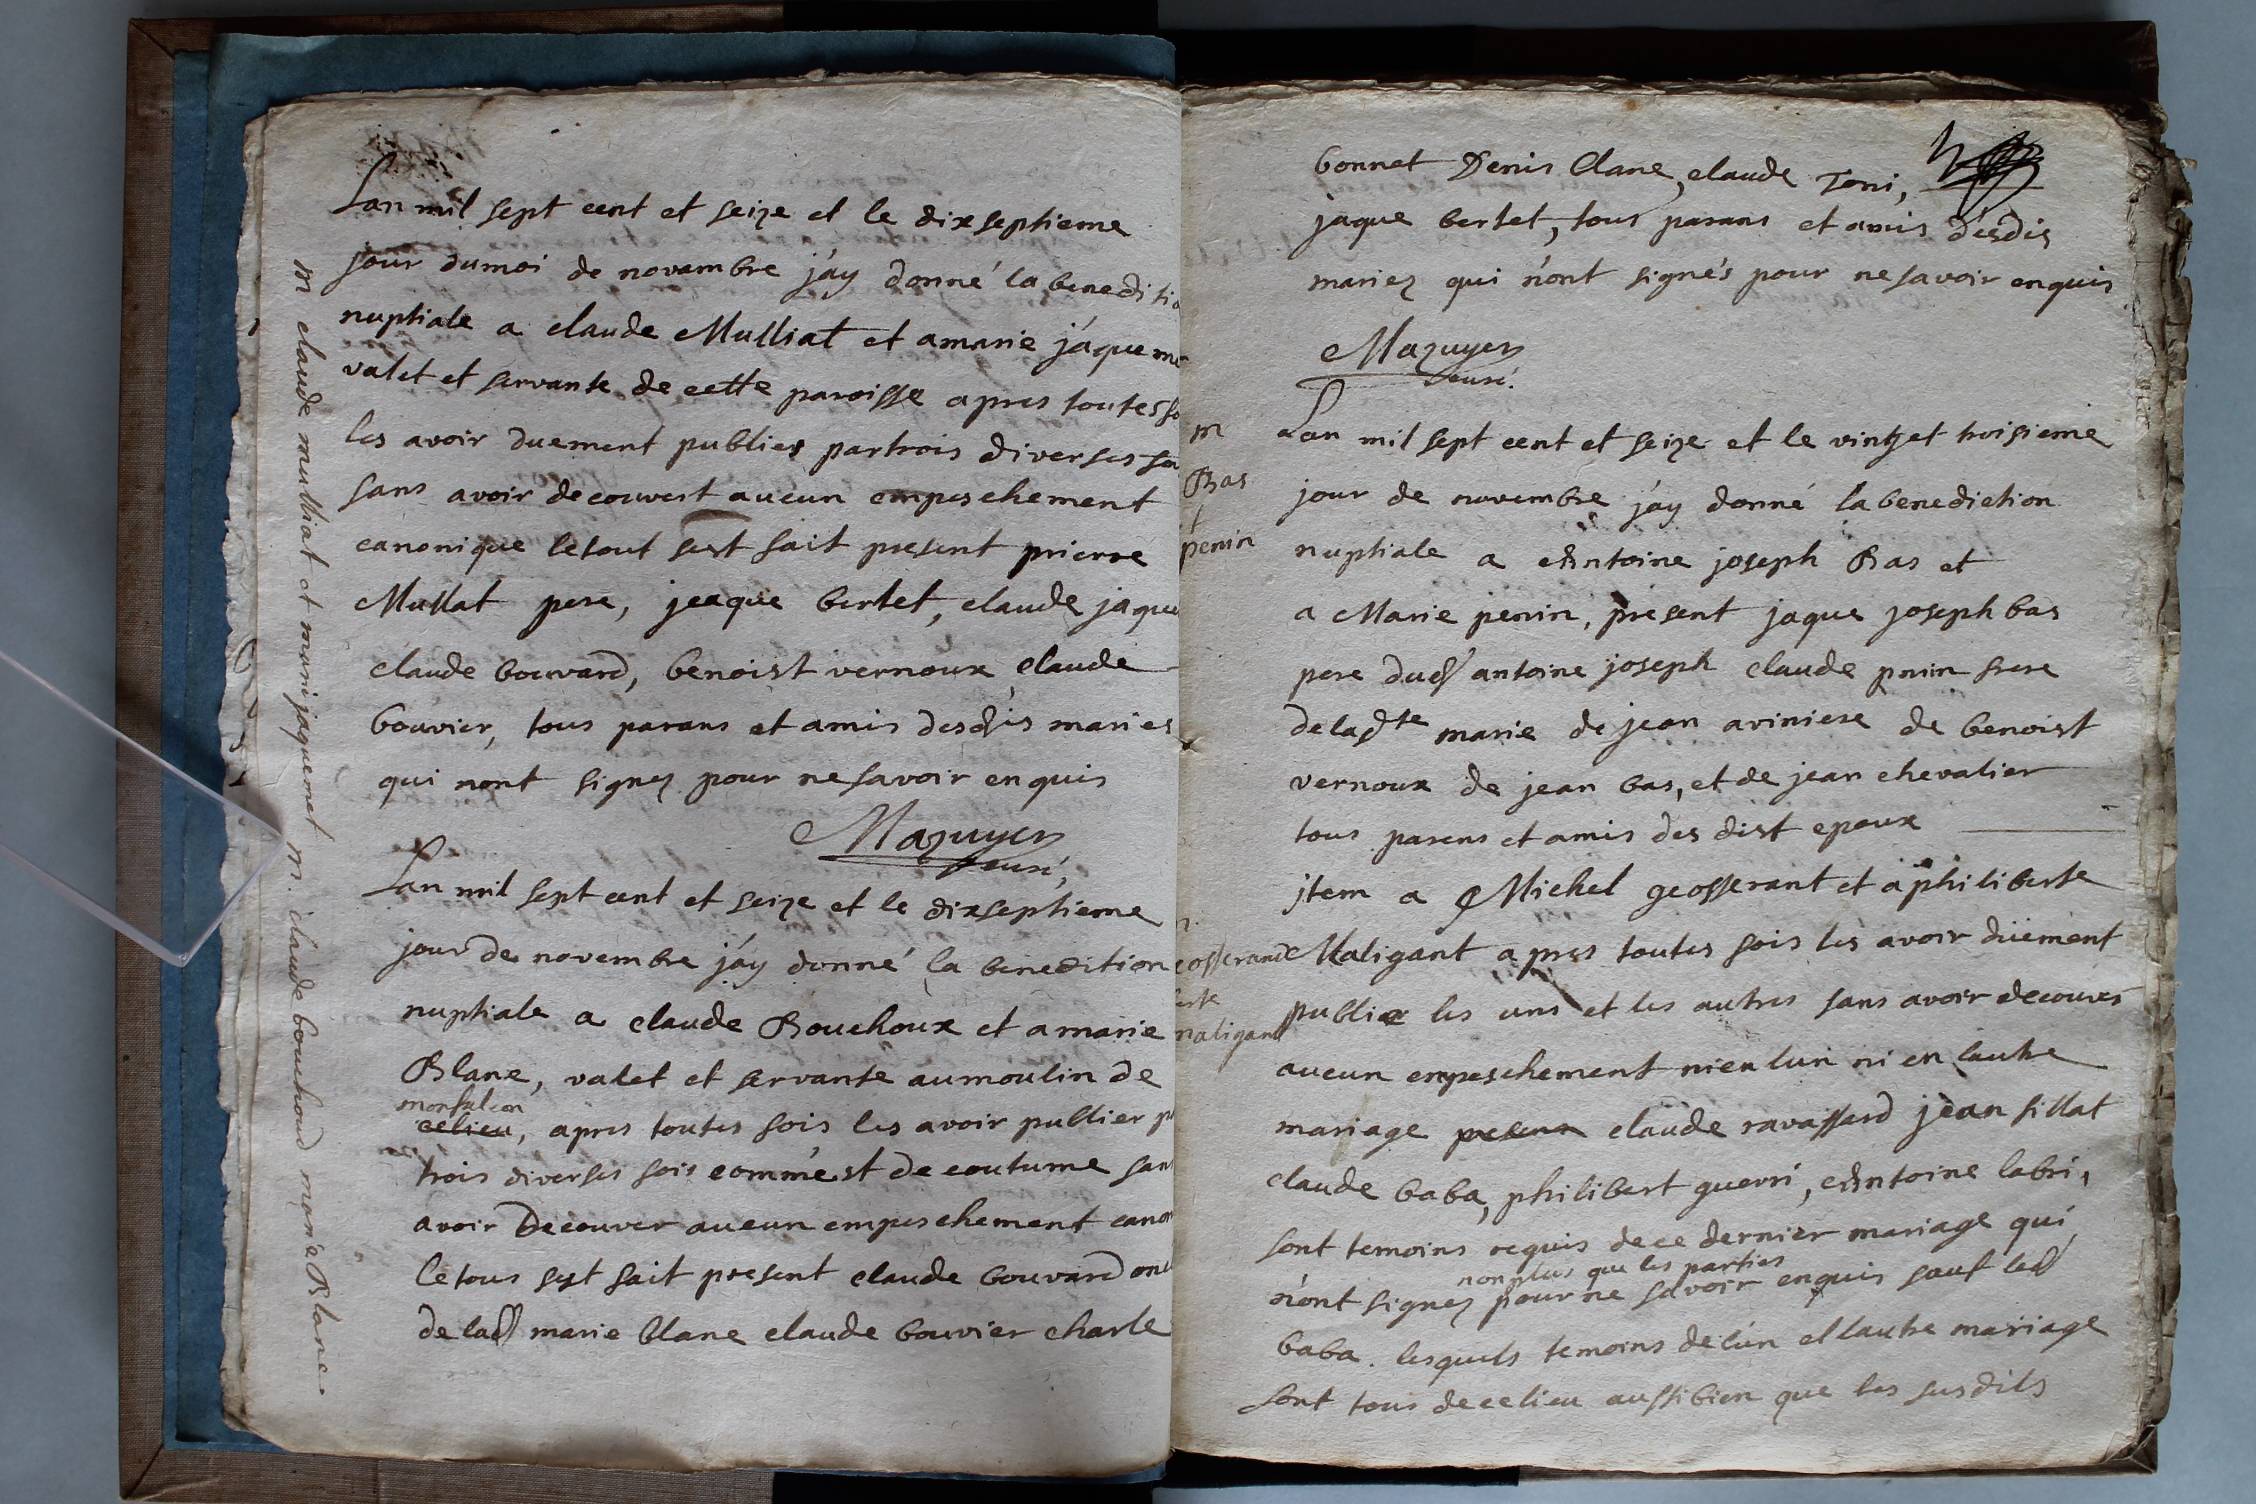 m claude mulliat et mari jaquemet m. claude bouchoud marie Blanc
Lan mil sept cent et seize et le dixseptieme
jour dumoi de novambre j'ay donné la beneditio
nuptiale a claude Mulliat et amarie jáqueme
valet et servante de cette paroisse apres toutesfo
les avoir duement publies partrois diverses foi
sans avoir decouvert aucun empeschement
canonique letout sest fait present prierre
Mullat pere, jeaque bertet, claude jaque
claude bouvard, benoist vernoux, claude
bouvier, tous parans et amis desdis maries
qui nont signez pour nesavoir enquis
Mazuyer
curé,
Lan mil sept cent et seize et le dixseptieme
jour de novembre j'áy donné la benedition
nuptiale a claude Bouchoux et a marie
Blanc, valet et servante aumoulin de
monfalcon
celieu, apres toutes fois les avoir publier p
trois diverses fois comméest de coutume san
avoir Decouver aucun empeschement canon
letous sest fait present claude bouvard onc
de lad marie blanc claude bouvier charle
bonnet Denis Clanc, claude Toni,
jaque bertet, tous parans et amis désdis
mariez qui n'ont signés pour nesavoir enquis
Mazuyer
curé.
m
Bas
penin
Lan mil sept cent et seize et le vintjet troisieme
jour de novembre j'áy donné labenediction
nuptiale a Antoine joseph Bas et
a Marie penin, present jaque joseph bas
pere dud antoine joseph claude pnin frere
deladte marie de jean aviniere de benoist
vernoux de jean bas, et de jean chevalier
tous parens et amis des dist epoux
jtem a Michel geosserant et a philiberte
eosserand
erte
maligant
Maligant apres toutes fois les avoir düement
publie les uns et les autres sans avoir decouver
aucun enpeschement nien lun ni en lautre
mariage presens claude ravassard jean fillat
claude baba, philibert guerri, Antoine labri,
sont temoins requis dece dernier mariage qui
non plus que les parties
n'ont signez pour ne savoir enquis sauf led
baba. lesquels temoins delún et lautre mariage
sont tous decelieu aussibien que les susdits